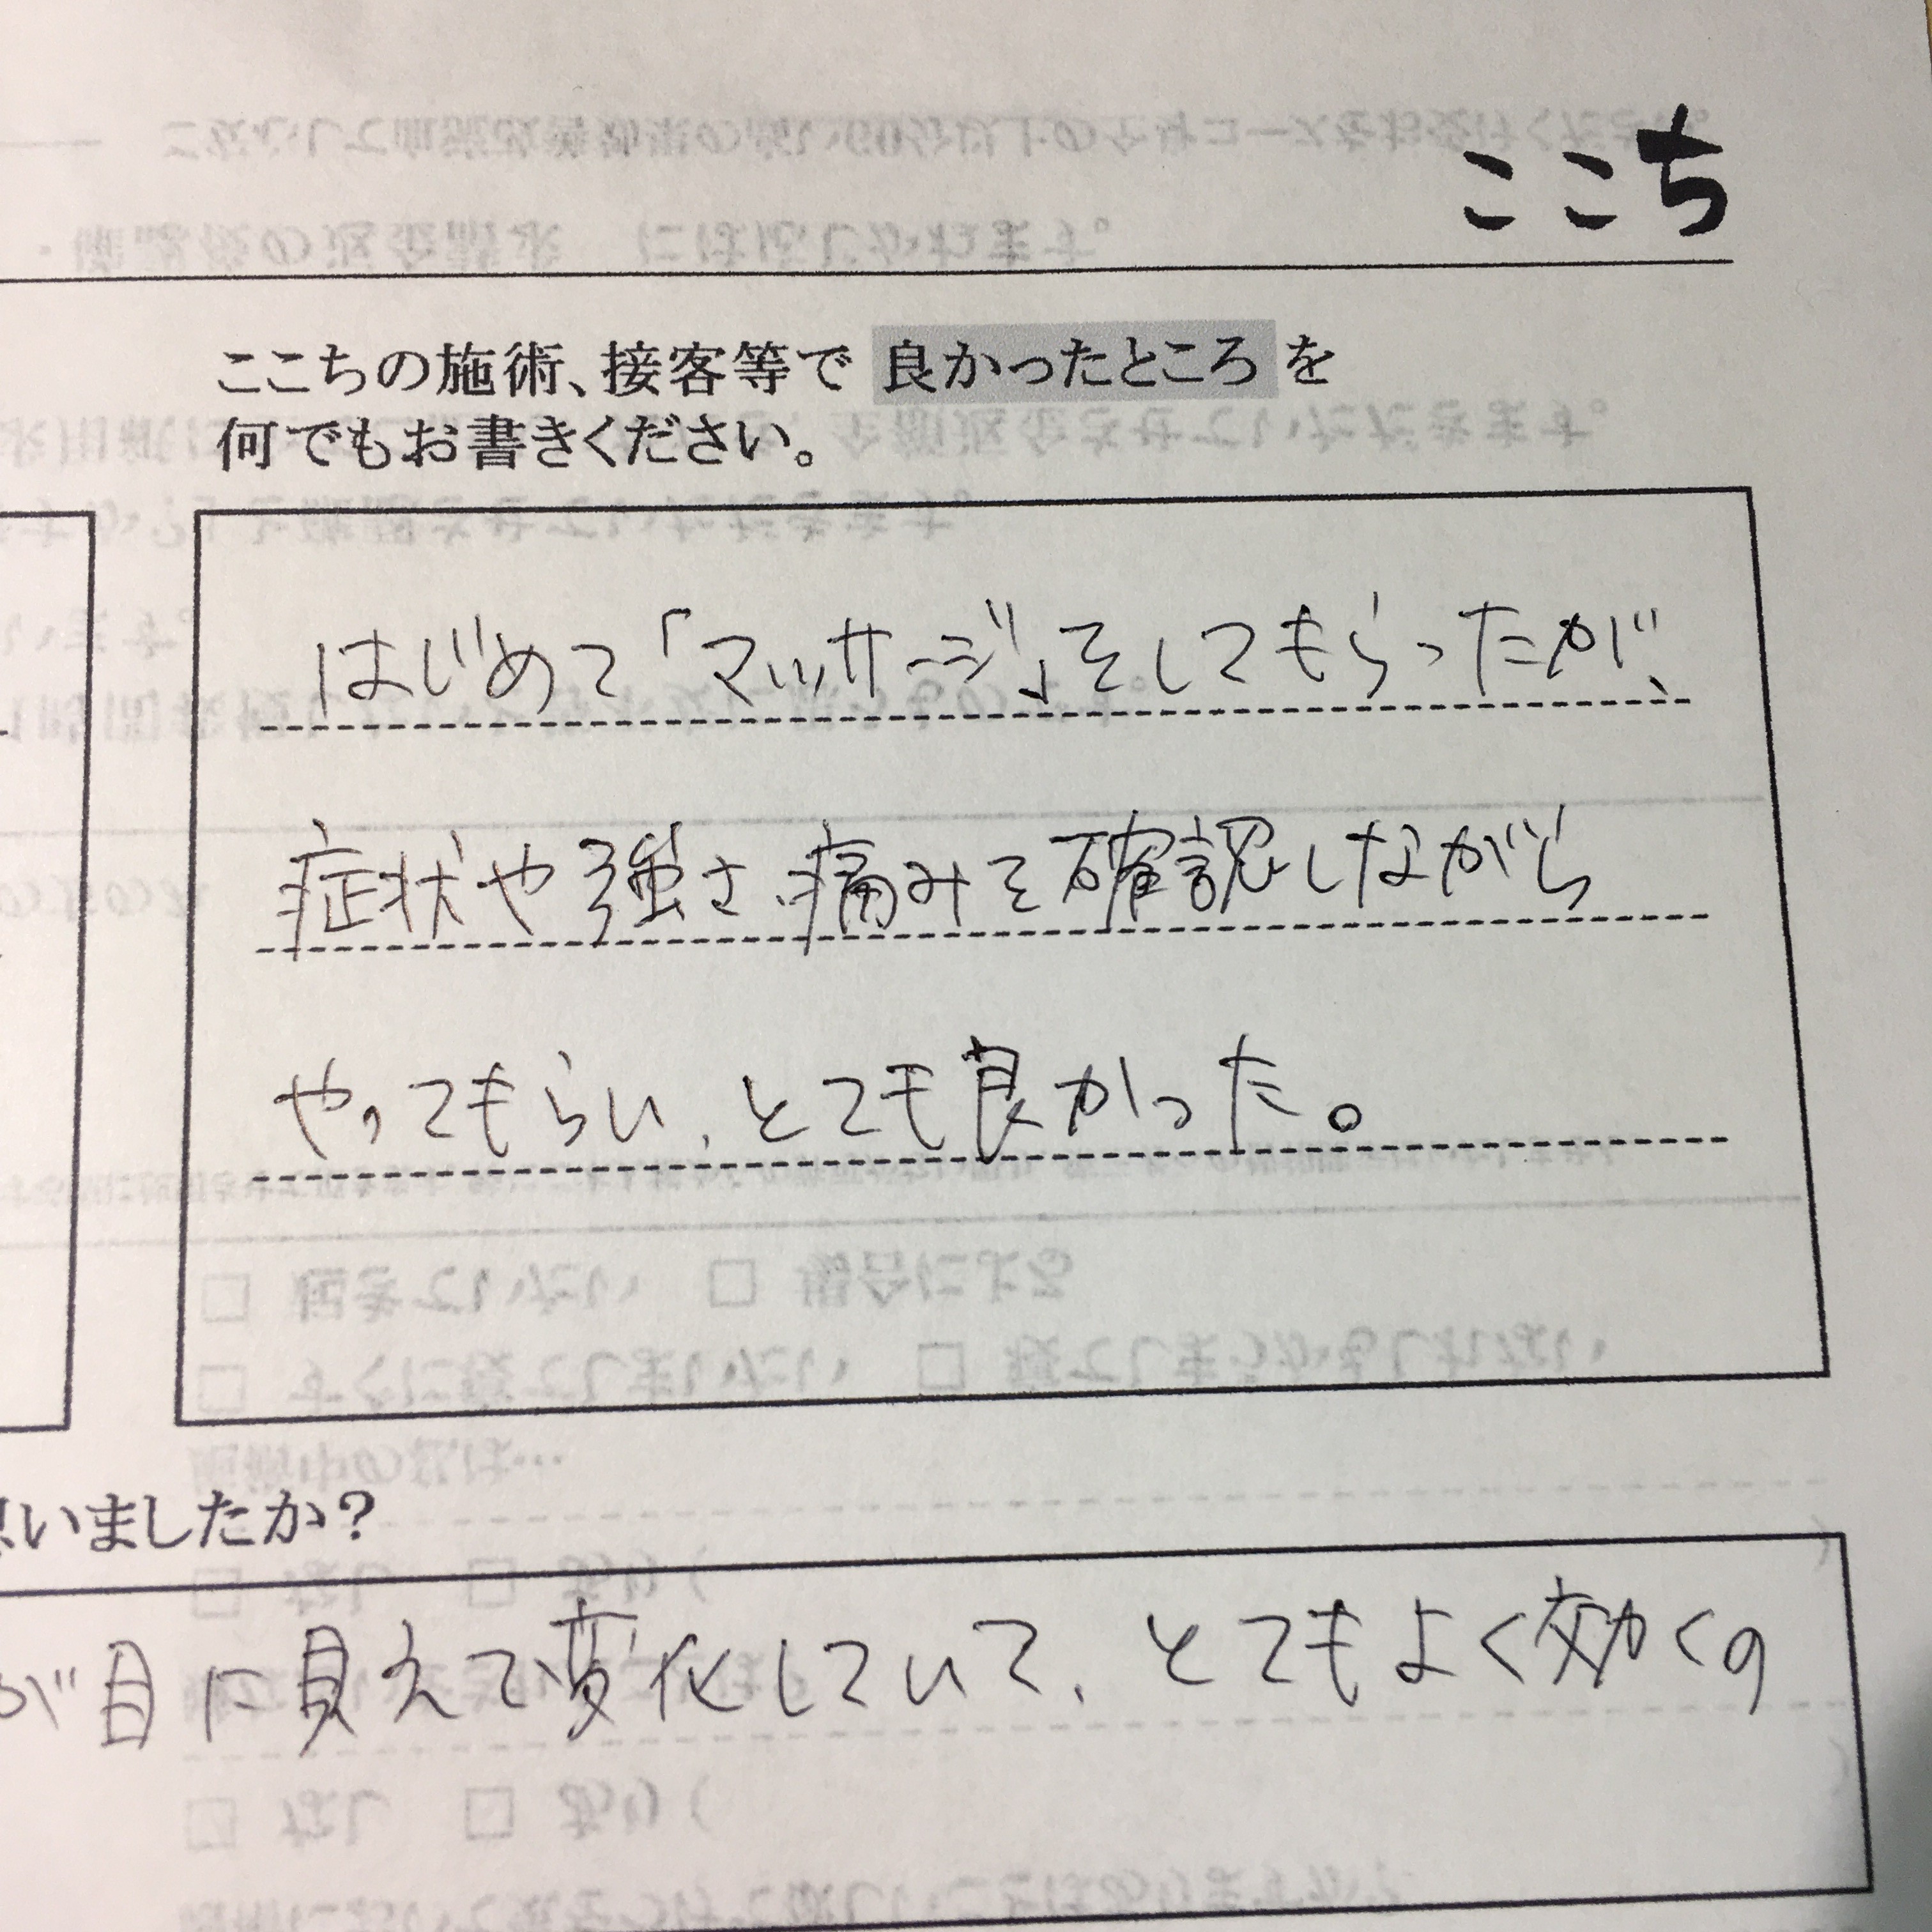 ここち
ここちの施術、接客等で 良かったところ を
何でもお書きください。
はじめて「マッサージ」をしてもらったが、
症状や強さ、痛みを確認しながら
やってもらい、とても良かった。
思いましたか？
が目に見えて変化していて、とてもよく効くの